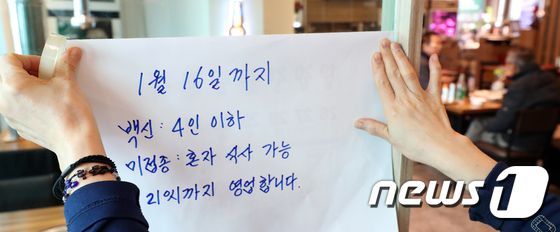 1월 16일까지
백신: 4인 이하
미접종: 혼자 식사 가능
21시까지 영업합니다.
news1